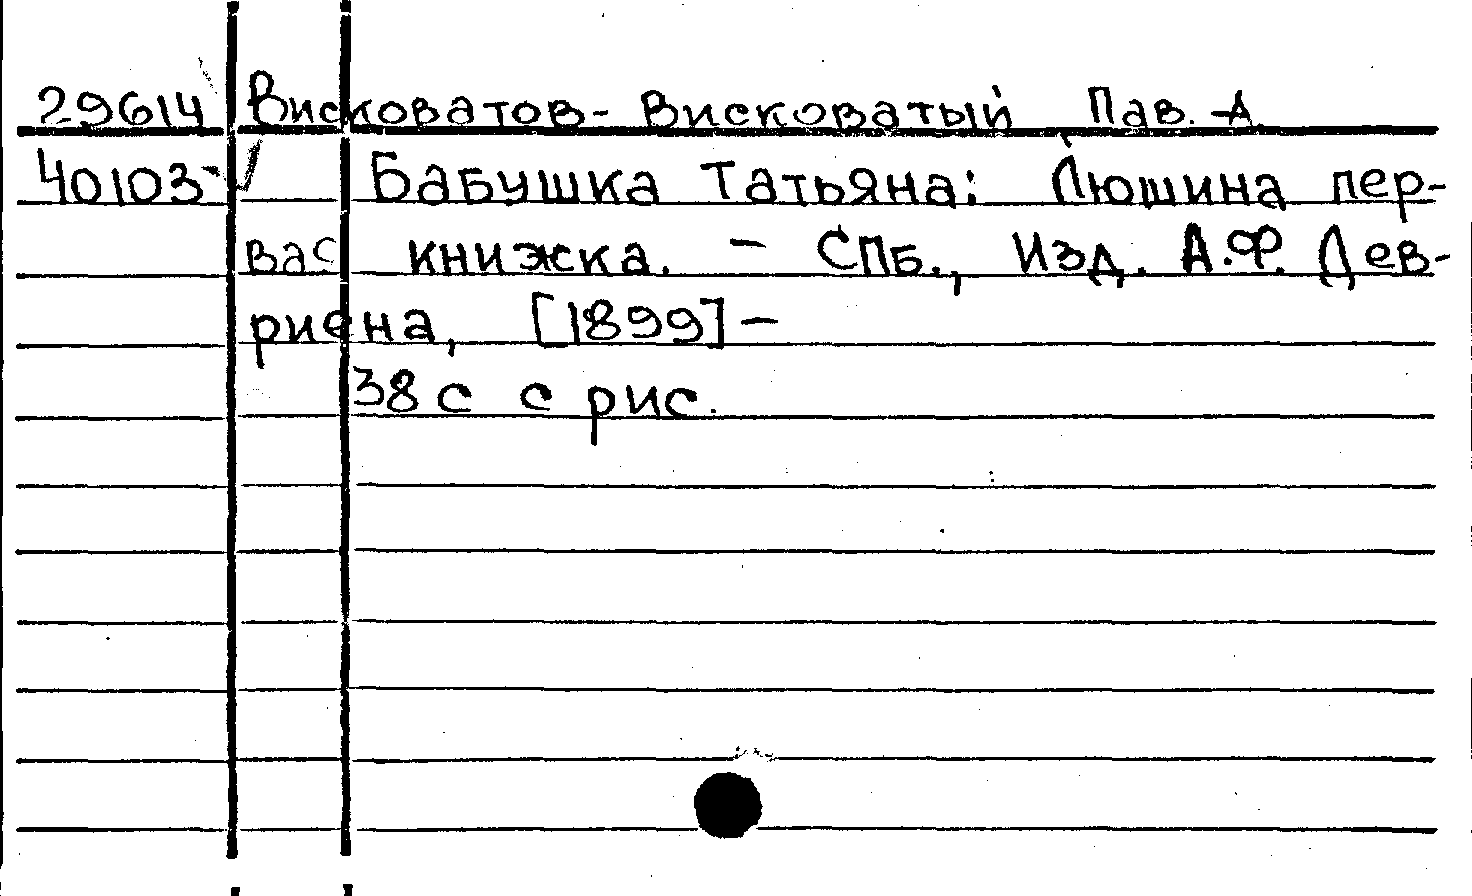 29614 Висковатов- Висковатый Пав. А.
40103 Бабушка Татьяна: Люшина пер-
вас книжка. - СПб., Изд. А.Ф. Дев-
риена, [1899] -
38 с с рис.